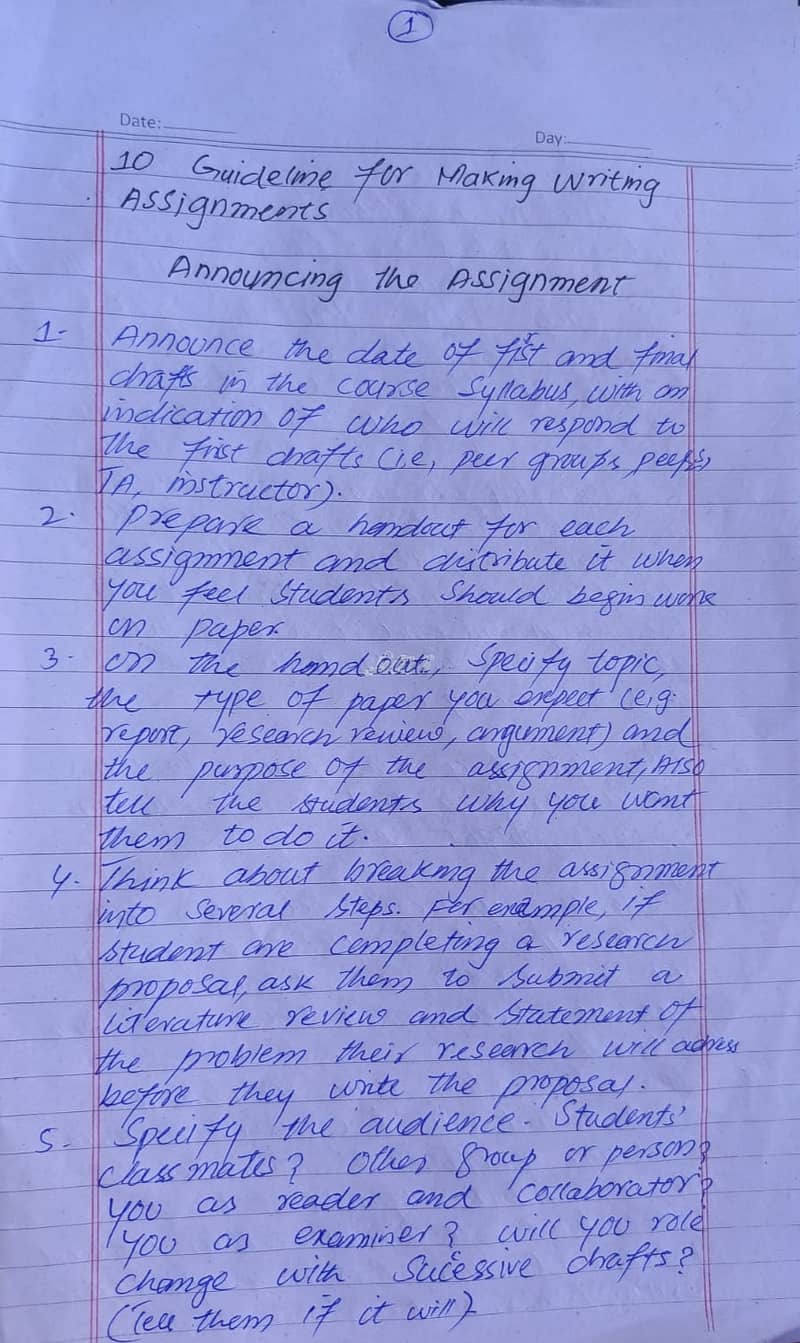 1
Date:
Day:
10 Guideline for Making Writing
Assignments
Announcing the Assignment
1- Announce the date of fist and final
drafts in the course Syllabus, with an
indication of who will respond to
the frist drafts (i.e, peer groups,
TA, instructor).
2. prepare a handout for each
assignment and distribute it when
you feel students should begin work
on paper.
3- on the hand out, Specify topic,
the type of paper you expect (e.g.
report, research review, argument) and
the purpose of the assignment, Also
tell the students why you want
them to do it.
4. Think about breaking the assignment
into Several steps. For example, if
student are completing a research
proposal, ask them to submit a
literature review and statement of
the problem their research will adress
before they write the proposal.
5- Specify the audience. Students'
class mates? Other group or person?
you as reader and collaborator?
you as examiner? will you role
change with Sucessive drafts?
(Tell them if it will)